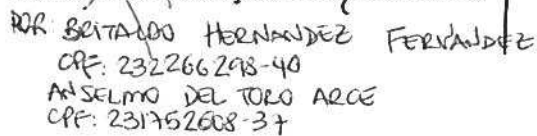 POR BRITALDO HERNANDEZ FERNANDEZ
CPF: 232266298-40
ANSELMO DEL TORO ARCE
CPF: 231752608-37